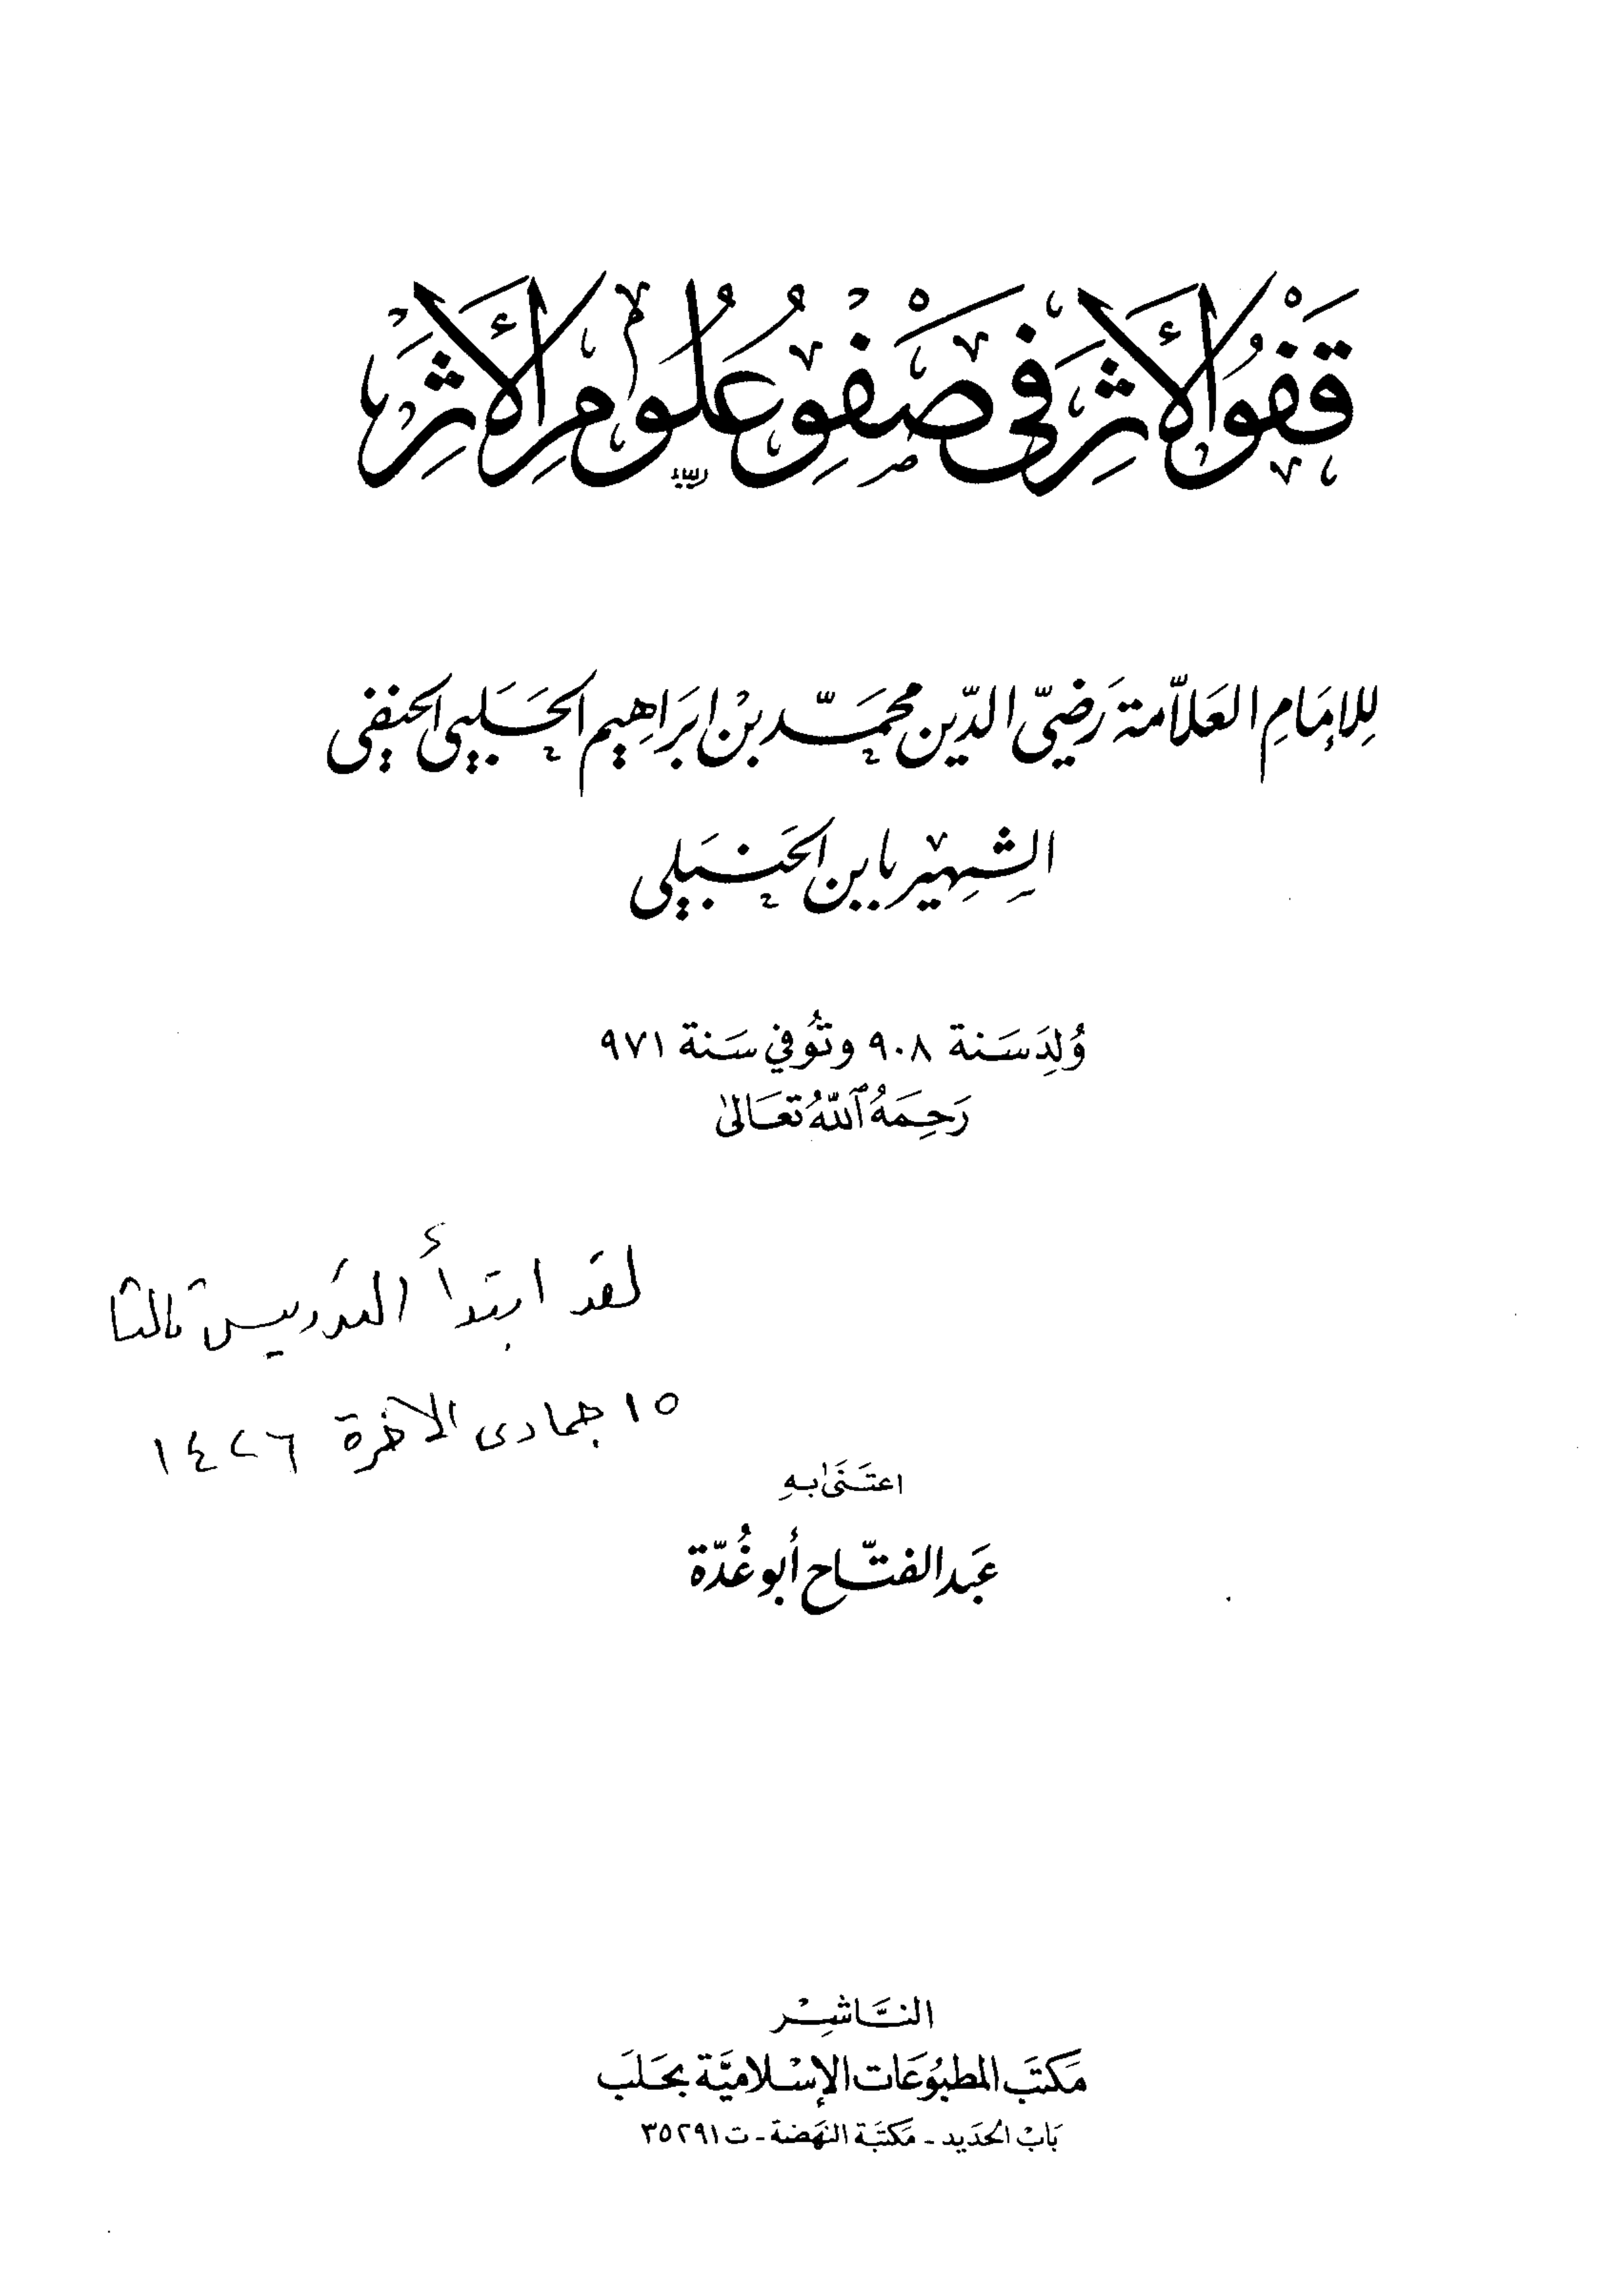 قَفْوُ الأَثَرِ فِي صَفْوِ عُلُومِ الأَثَرْ
لِلإمَامِ العَلاّمة رَضِيّ الدّين محمَّد بْن ابَراهِيم الحَلَبِي الحنفِي
الشهِيْر بابن الحَنبَلِي
وُلِدَ سَنة ٩٠٨ وتُوفي سَنة ٩٧١
رَحِمَهُ ٱللهُ تعَالىٰ
لقد ابتدأ التدريس ثالثا
١٥ جمادى الآخرة ١٤٢٦
اعتَنَىٰ بهِ
عَبد الفتّاح أبو غُدّة
النَّاشِرْ
مَكتَب المطبُوعَات الإسْلاميَّة بحَلَب
بَابْ الحَديد - مَكتَبَة النهَضة - ت ٣٥٢٩١